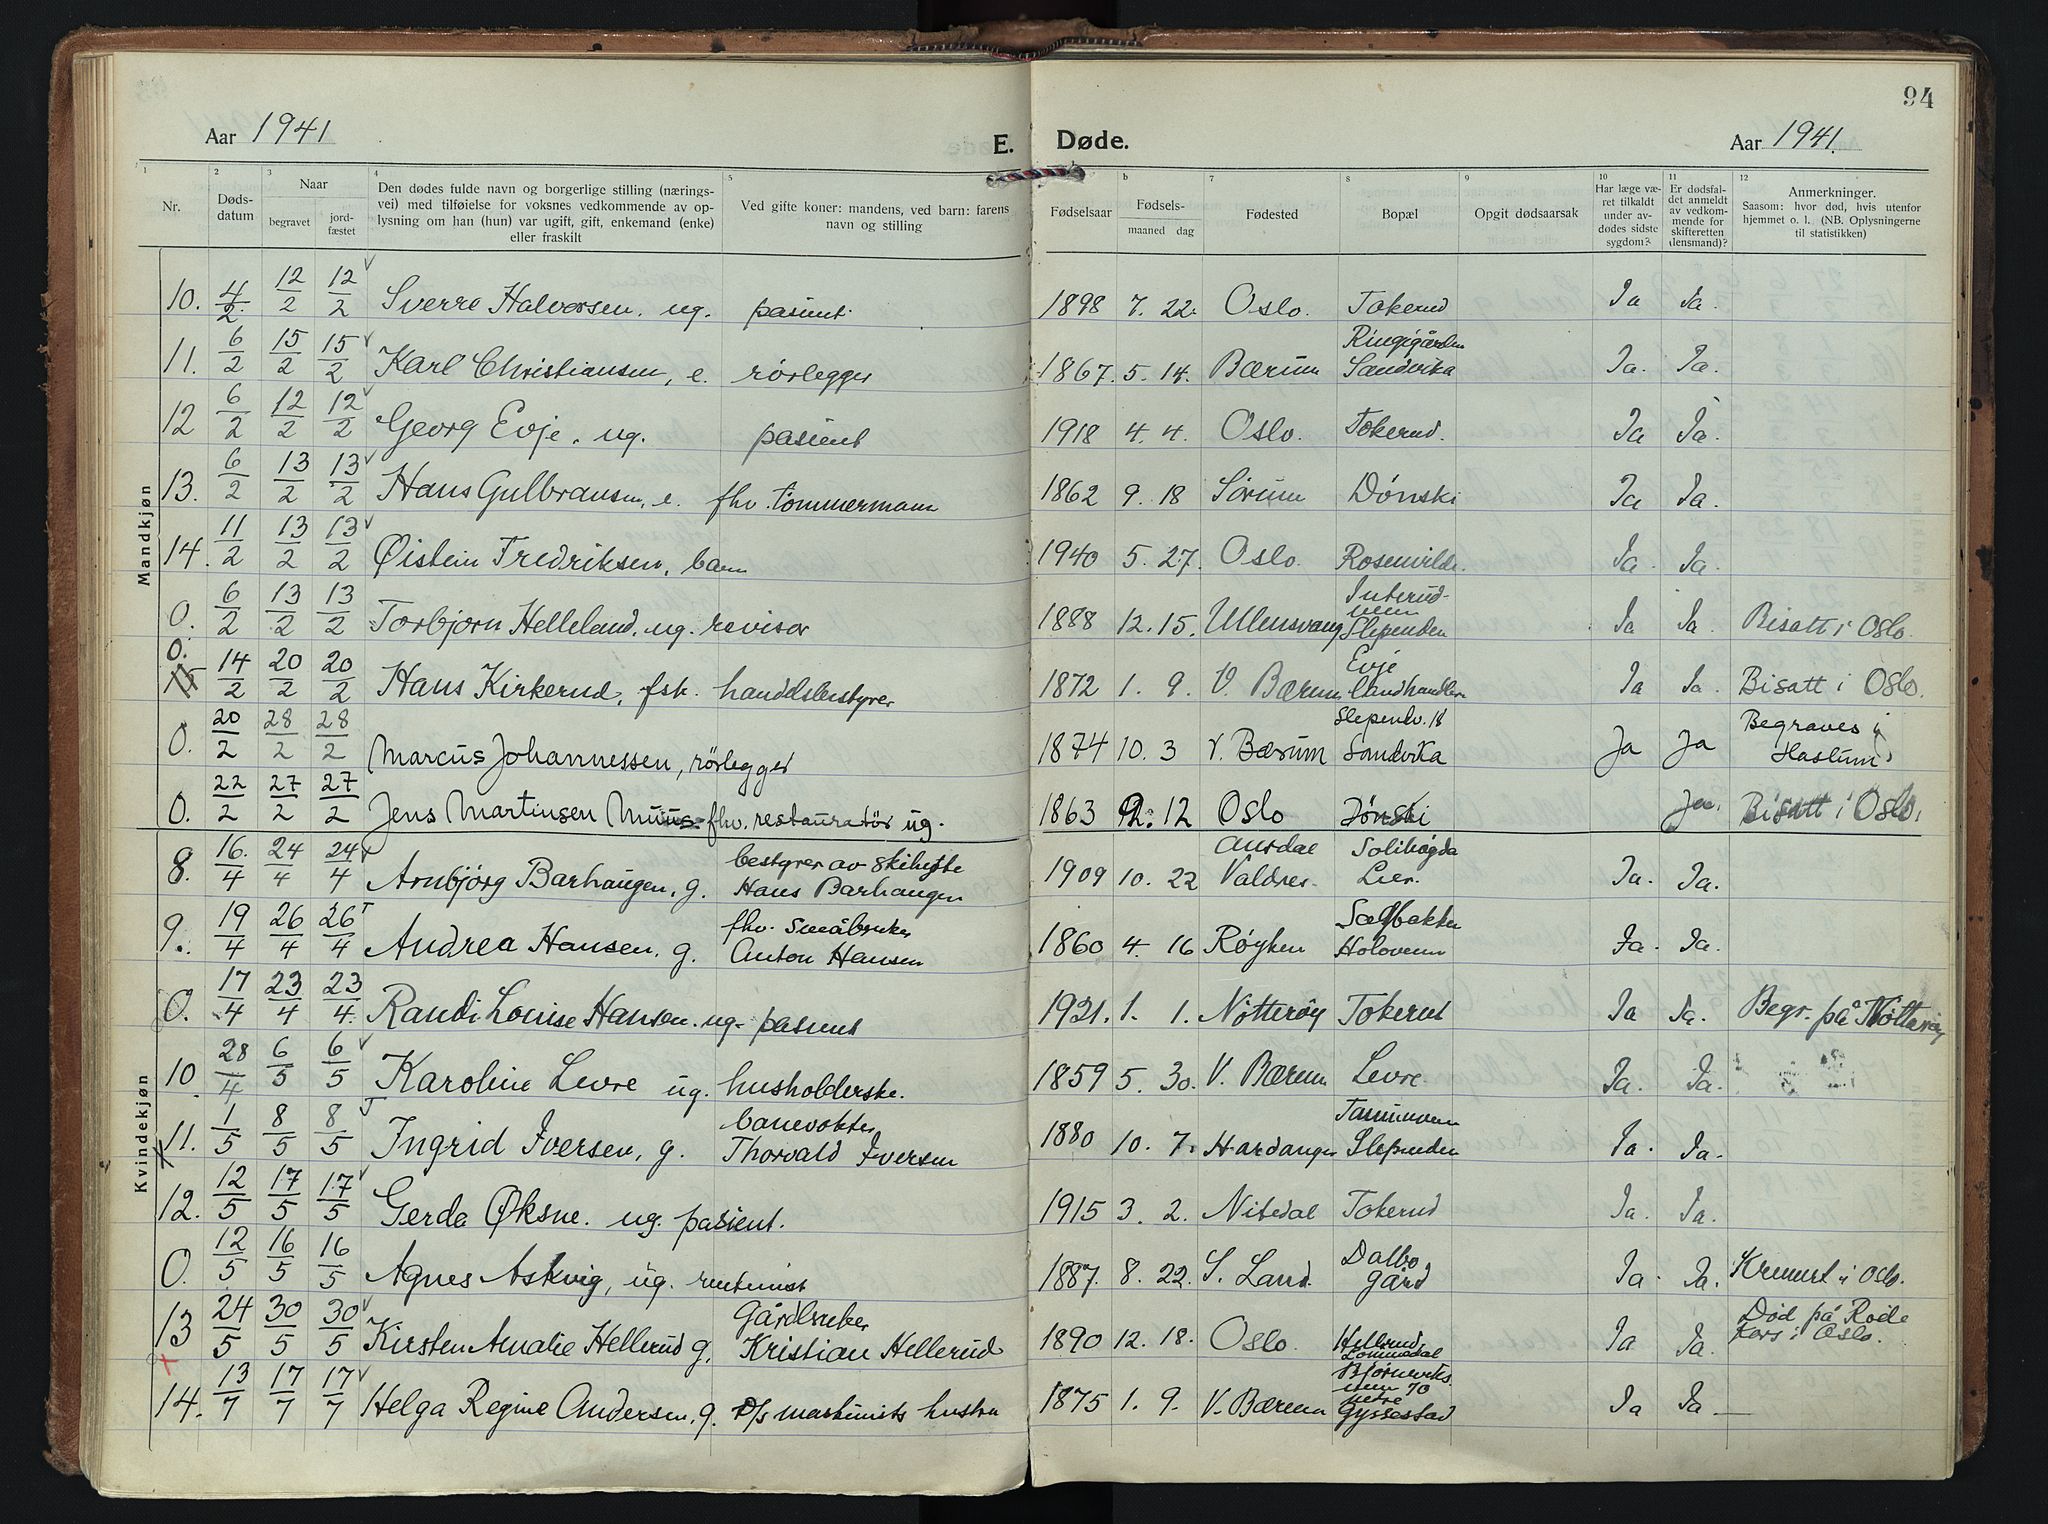 94
Aar 1941 E. Døde. Aar 1941.
1 2 3 4 5 b 7 8 9 10 11 12
Nr. Dødsdatum Naar begravet jordfæstet
Den dødes fulde navn og borgerlige stilling (næringsvei) med tilføielse for voksnes vedkommende av oplysning om han (hun) var ugift, gift, enkemand (enke) eller fraskilt
Ved gifte koner: mandens, ved barn: farens navn og stilling
Fødselsaar Fødselsmaaned dag Fødested Bopæl Opgit dødsaarsak
Har læge været tilkaldt under avdødes sidste sygdom?
Er dødsfaldet anmeldt av vedkommende for skifteretten (lensmand)?
Anmerkninger. Saasom: hvor død, hvis utenfor hjemmet o. l. (NB. Oplysningerne til statistikken)
Mandkjøn
10. 4/2 12/2 12/2 Sverre Halvorsen, ug. pasient. 1898 7. 22. Oslo. Tokerud Ja Ja.
11. 6/2 15/2 15/2 Karl Christiansen, e. rørlegger 1867. 5. 14. Bærum Ringigården Sandvika Ja. Ja.
12 6/2 12/2 12/2 Georg Evje. ug. pasient 1918 4. 4. Oslo. Tokerud. Ja Ja.
13. 6/2 13/2 13/2 Hans Gulbransen, e. fhv. tømmermann 1862 9. 18 Sørum Dønski Ja Ja.
14. 11/2 13/2 13/2 Øistein Fredriksen, barn 1940 5. 27. Oslo. Rosenvilde. Ja. Ja.
0. 6/2 13/2 13/2 Torbjørn Helleland, ug. revisor 1888 12. 15. Ullensvang Slependen Ja Ja. Bisatt i Oslo.
0. 15 14/2 20/2 20/2 Hans Kirkerud, fsk. handelsbestyrer 1872 1. 9. V. Bærum Evje landhandleri Ja Ja. Bisatt i Oslo.
0. 20/2 28/2 28/2 Marcus Johannessen, rørlegger 1874 10. 3 V. Bærum Slependv. 18 Sandvika Ja Ja Begraves i Haslum
0. 22/2 27/2 27/2 Jens Martinsen Muus fhv. restauratør ug. 1863 12 Oslo Dønski Ja. Bisatt i Oslo.
Kvindekjøn
8. 16./4 24/4 24/4 Arnbjörg Barhaugen, g. bestyrer av skihytte Hans Barhaugen 1909 10. 22 Aurdal Valdres. Solihøgda Lier. Ja. Ja.
9. 19/4 26/4 26/4 Andrea Hansen, g. fhv. småbruker Anton Hansen 1860 4. 16 Røyken Ja. Ja.
0. 17/4 23/4 23/4. Randi Louise Hansen. ug. pasient 1921. 1. 1. Nøtterøy Tokerud Ja Ja. Begr. på Nøtterøy
10. 28/4 6/5 6/5 Karoline Levre ug. husholderske. 1859 5. 30. V. Bærum Levre. Ja. Ja.
11. 1/5 8/5 8/5 Ingrid Iversen, g. banevokter Thorvald Iversen 1880 10. 7. Hardanger Slependen Ja. Ja.
12. 12/5 17/5 17/5 Gerda Øksne. ug. pasient. 1915 3. 2. Nitedal Tokerud Ja. Ja.
0. 12/5 16/5 16/5 Agnes Askvig, ug. rentenist 1887. 8. 22. S. Land. Dalbo gård Ja. Ja. Kremert i Oslo.
13 24/5 30/5 30/5 Kirsten Amalie Hellerud g. Gårdbruker Kristian Hellerud 1890 12. 18. Oslo. Hellerud, Lommedal Ja Ja. Død på Røde Kors i Oslo.
14. 13/7 17/7 17/7 Helga Regine Andersen, g. D/s maskinists hustru 1875 1. 9. V. Bærum 70 nedre Gyssestad Ja Ja —